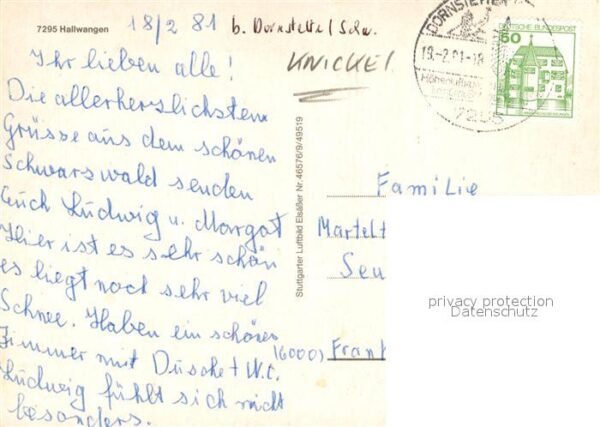 7295 Hallwangen
18/2 81
b. Dornstetten/Schw.
KNICKEL
Ihr lieben alle!
Die allerherzlichsten
Grüsse aus dem schönen
Schwarswald senden
Euch Ludwig u. Margot
Hier ist es sehr schön
es liegt noch sehr viel
Schnee. Haben ein schönes
Zimmer mit Dusche + W.C.
Ludwig fühlt sich nicht
besonders.
Stuttgarter Luftbild Elsäßer Nr. 46576/9/49519
DORNSTETTEN
18.-2.81-18
Höhenluftkurort
7295
DEUTSCHE BUNDESPOST
50
Familie
Martelt
Seu
(6000) Frank
privacy protection
Datenschutz